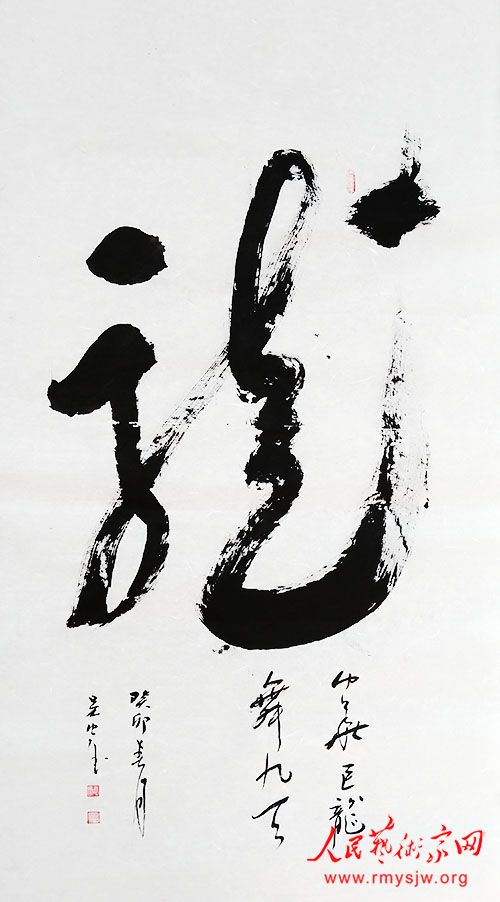 龍
巨龍
舞九天
癸卯春月
人民藝術家网
www.rmysjw.org